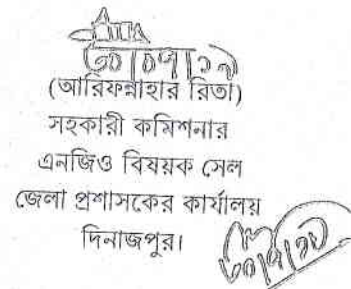 ৩০|০৭|১৯
(আরিফন্নাহার রিতা)
সহকারী কমিশনার
এনজিও বিষয়ক সেল
জেলা প্রশাসকের কার্যালয়
দিনাজপুর।